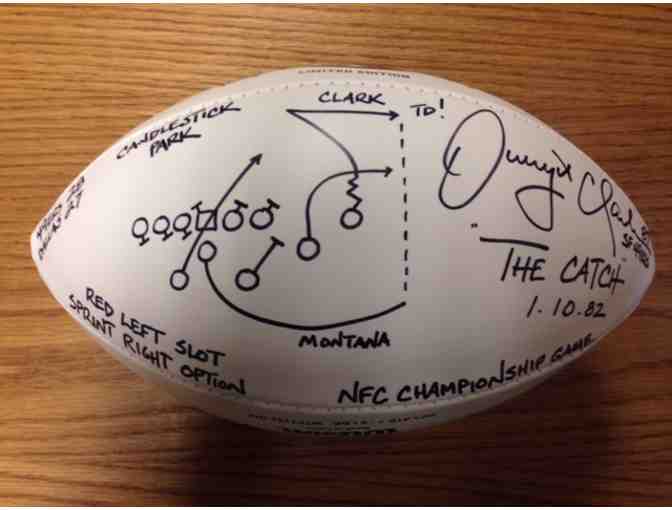 LIMITED EDITION
CANDLESTICK
PARK
CLARK
TD!
Dwight Clark
"THE CATCH"
1.10.82
RED LEFT SLOT
SPRINT RIGHT OPTION
MONTANA
NFC CHAMPIONSHIP GAME